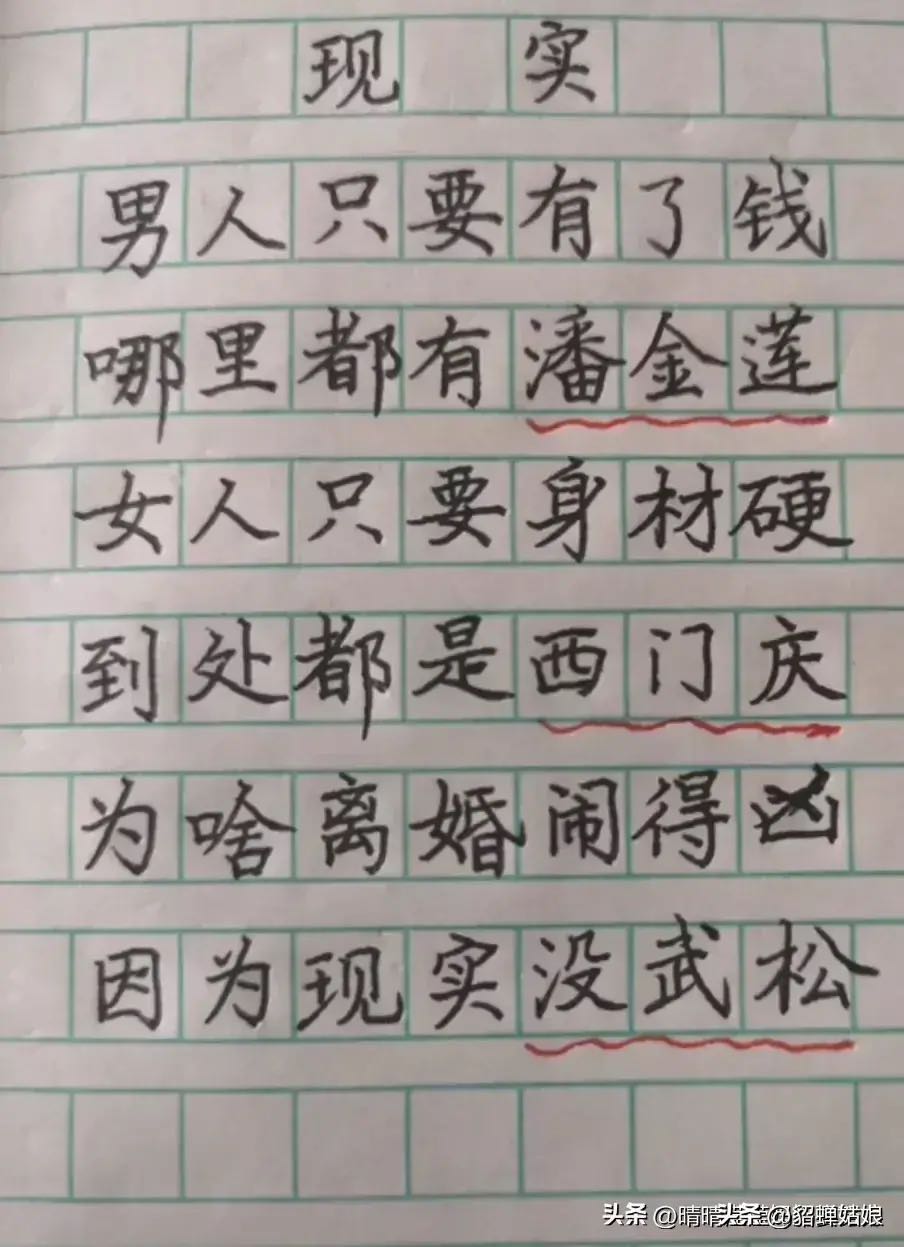 现实
男人只要有了钱
哪里都有潘金莲
女人只要身材硬
到处都是西门庆
为啥离婚闹得凶
因为现实没武松
头条 @晴晴 头条 @貂蝉姑娘